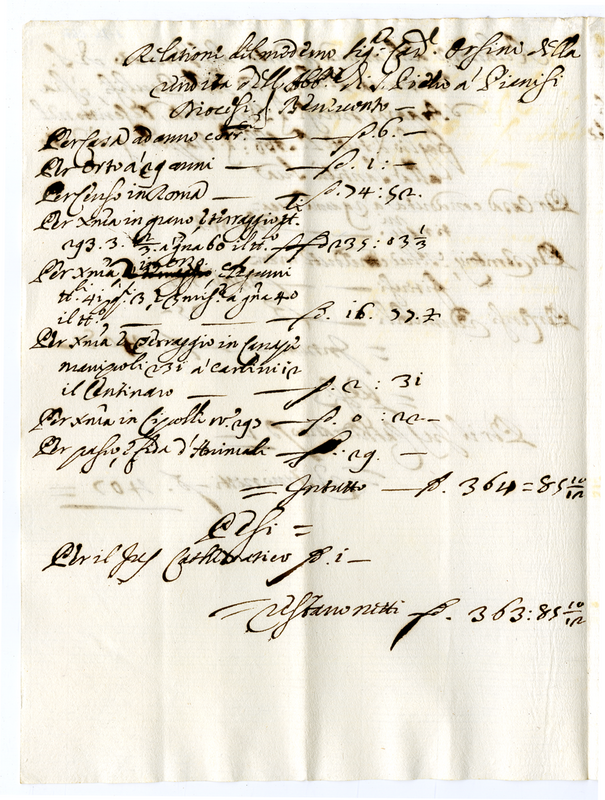 Relatione del medemo Sig.r Card. Orsini della
rendita dell'Abb.a di S. Pietro a' Pianisi
Diocesi di Benevento —
Per Casa ad anno — d. 6. —
Per Orto a' 29 anni — d. 1: —
Per Censo in Roma — d. 74: 52.
Per Xma in grano e terraggio tt.
293. 3. a gna 60 il tt.o — d 235: 03 1/3
Per Xma legumi
tt.i 41 3 mis.e a' gna 40
il tt.o — d. 16. 77.
Per Xma e Terraggio in Canape
manipoli 231 a' carlini 12
il Centinaro — d. 2: 31
Per Xma in Cipolle n.o 293 — d. 0: 22 —
Per pascolo e fida d'Animali — d. 29. —
= In tutto — d. 364 = 85 10/12
Pesi =
Per il Jus Cathedratico d. 1 —
Restano netti d. 363: 85 10/12